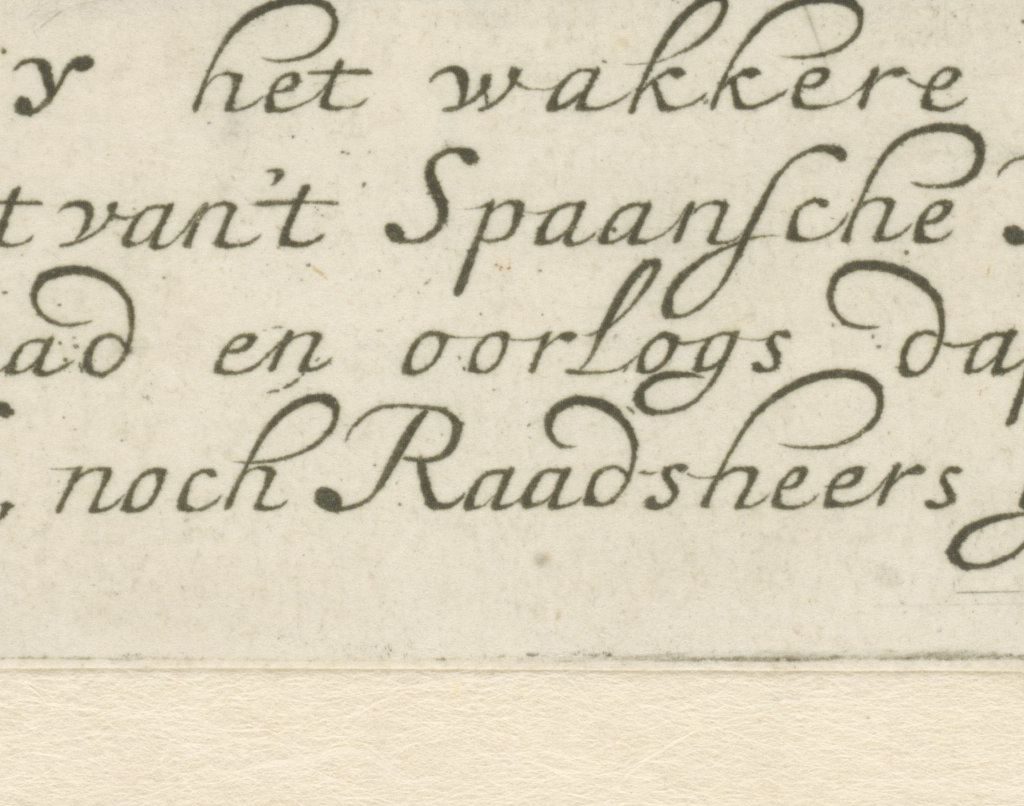 y het wakkere
t van't Spaansche
ad en oorlogs da
, noch Raadsheers